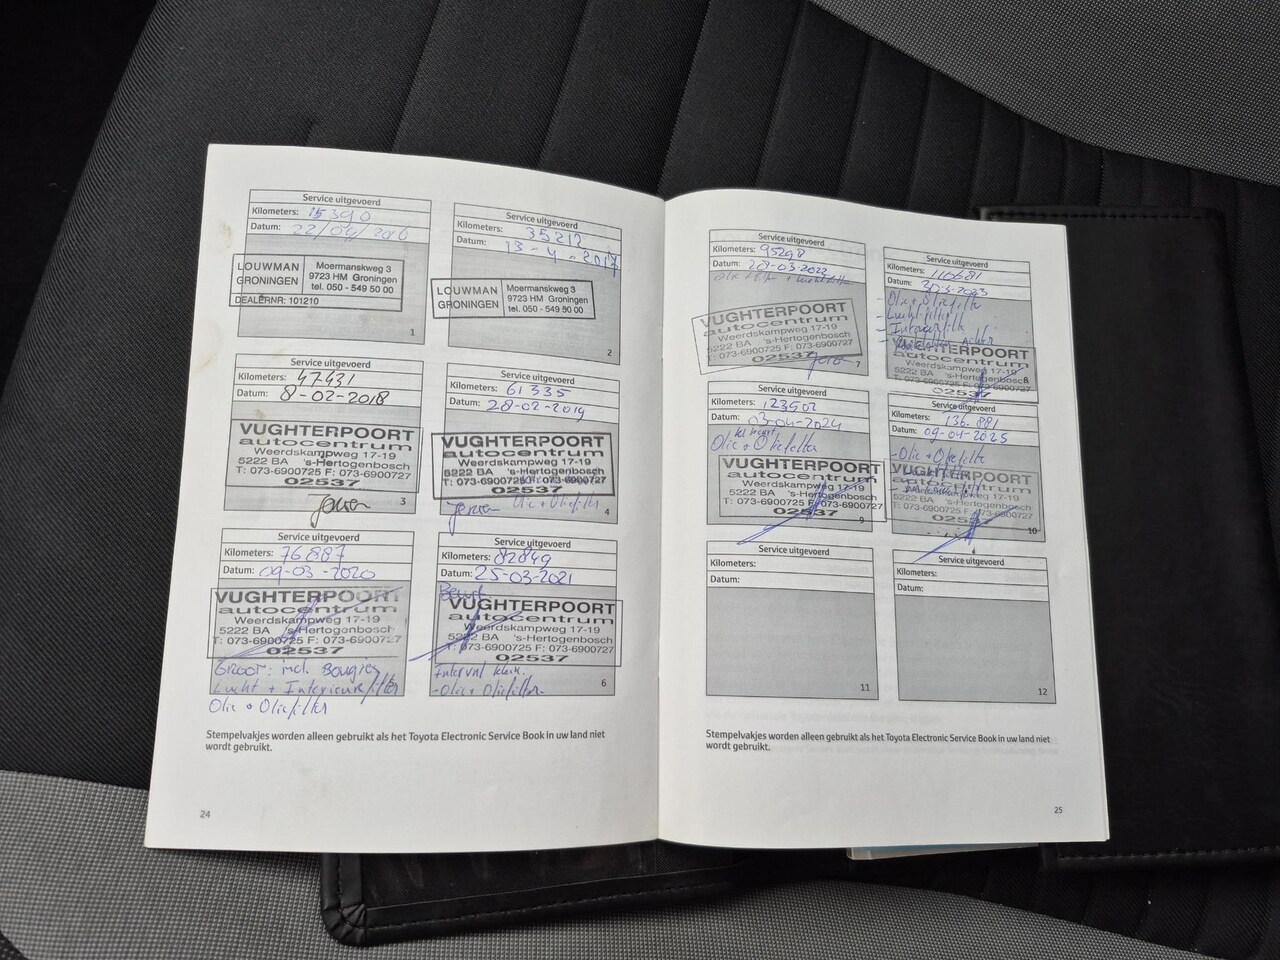 Service uitgevoerd
Kilometers: 15390
Datum: 22/04/2016
LOUWMAN GRONINGEN
Moermanskweg 3
9723 HM Groningen
tel. 050 - 549 50 00
DEALERNR: 101210
1
Service uitgevoerd
Kilometers: 35212
Datum: 13-4-2017
LOUWMAN GRONINGEN
Moermanskweg 3
9723 HM Groningen
tel. 050 - 549 50 00
2
Service uitgevoerd
Kilometers: 47431
Datum: 8-02-2018
VUGHTERPOORT
autocentrum
Weerdskampweg 17-19
5222 BA 's-Hertogenbosch
T: 073-6900725 F: 073-6900727
02537
Jeroen
3
Service uitgevoerd
Kilometers: 61335
Datum: 28-02-2019
VUGHTERPOORT
autocentrum
Weerdskampweg 17-19
5222 BA 's-Hertogenbosch
T: 073-6900725 F: 073-6900727
02537
Jeroen Olie + Oliefilter
4
Service uitgevoerd
Kilometers: 76887
Datum: 09-03-2020
VUGHTERPOORT
autocentrum
Weerdskampweg 17-19
5222 BA 's-Hertogenbosch
T: 073-6900725 F: 073-6900727
02537
Groot: incl. Bougies
Lucht + Interieurfilter
Olie + Oliefilter
Service uitgevoerd
Kilometers: 82849
Datum: 25-03-2021
Beurt
VUGHTERPOORT
autocentrum
Weerdskampweg 17-19
5222 BA 's-Hertogenbosch
T: 073-6900725 F: 073-6900727
02537
Interval klein.
- Olie + Oliefilter-
6
Stempelvakjes worden alleen gebruikt als het Toyota Electronic Service Book in uw land niet
wordt gebruikt.
24
Service uitgevoerd
Kilometers: 95298
Datum: 28-03-2022
VUGHTERPOORT
autocentrum
Weerdskampweg 17-19
5222 BA 's-Hertogenbosch
T: 073-6900725 F: 073-6900727
02537
Jeroen
7
Service uitgevoerd
Kilometers: 110681
Datum: 30-3-2023
- Olie + Oliefilter
- Luchtfilter
- Interieurfilter
VUGHTERPOORT
autocentrum
Weerdskampweg 17-19
5222 BA 's-Hertogenbosch
T: 073-6900725 F: 073-6900727
02537
8
Service uitgevoerd
Kilometers: 123502
Datum: 03-04-2024
kl beurt
Olie + Oliefilter
VUGHTERPOORT
autocentrum
Weerdskampweg 17-19
5222 BA 's-Hertogenbosch
T: 073-6900725 F: 073-6900727
02537
9
Service uitgevoerd
Kilometers: 136.881
Datum: 09-04-2025
- Olie + Oliefilter
VUGHTERPOORT
autocentrum
Weerdskampweg 17-19
5222 BA 's-Hertogenbosch
T: 073-6900725 F: 073-6900727
02537
10
Service uitgevoerd
Kilometers:
Datum:
11
Service uitgevoerd
Kilometers:
Datum:
12
Stempelvakjes worden alleen gebruikt als het Toyota Electronic Service Book in uw land niet
wordt gebruikt.
25